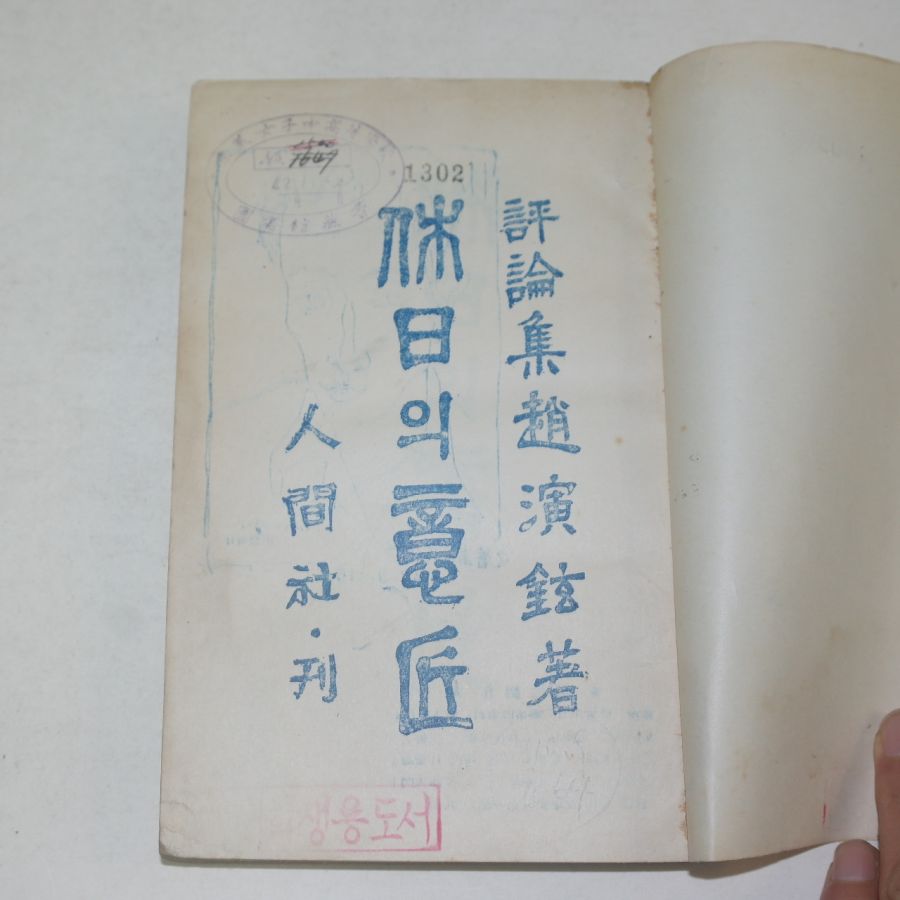 評論集 趙演鉉著
休日의 意匠
人間社·刊
1302
1647
생용도서